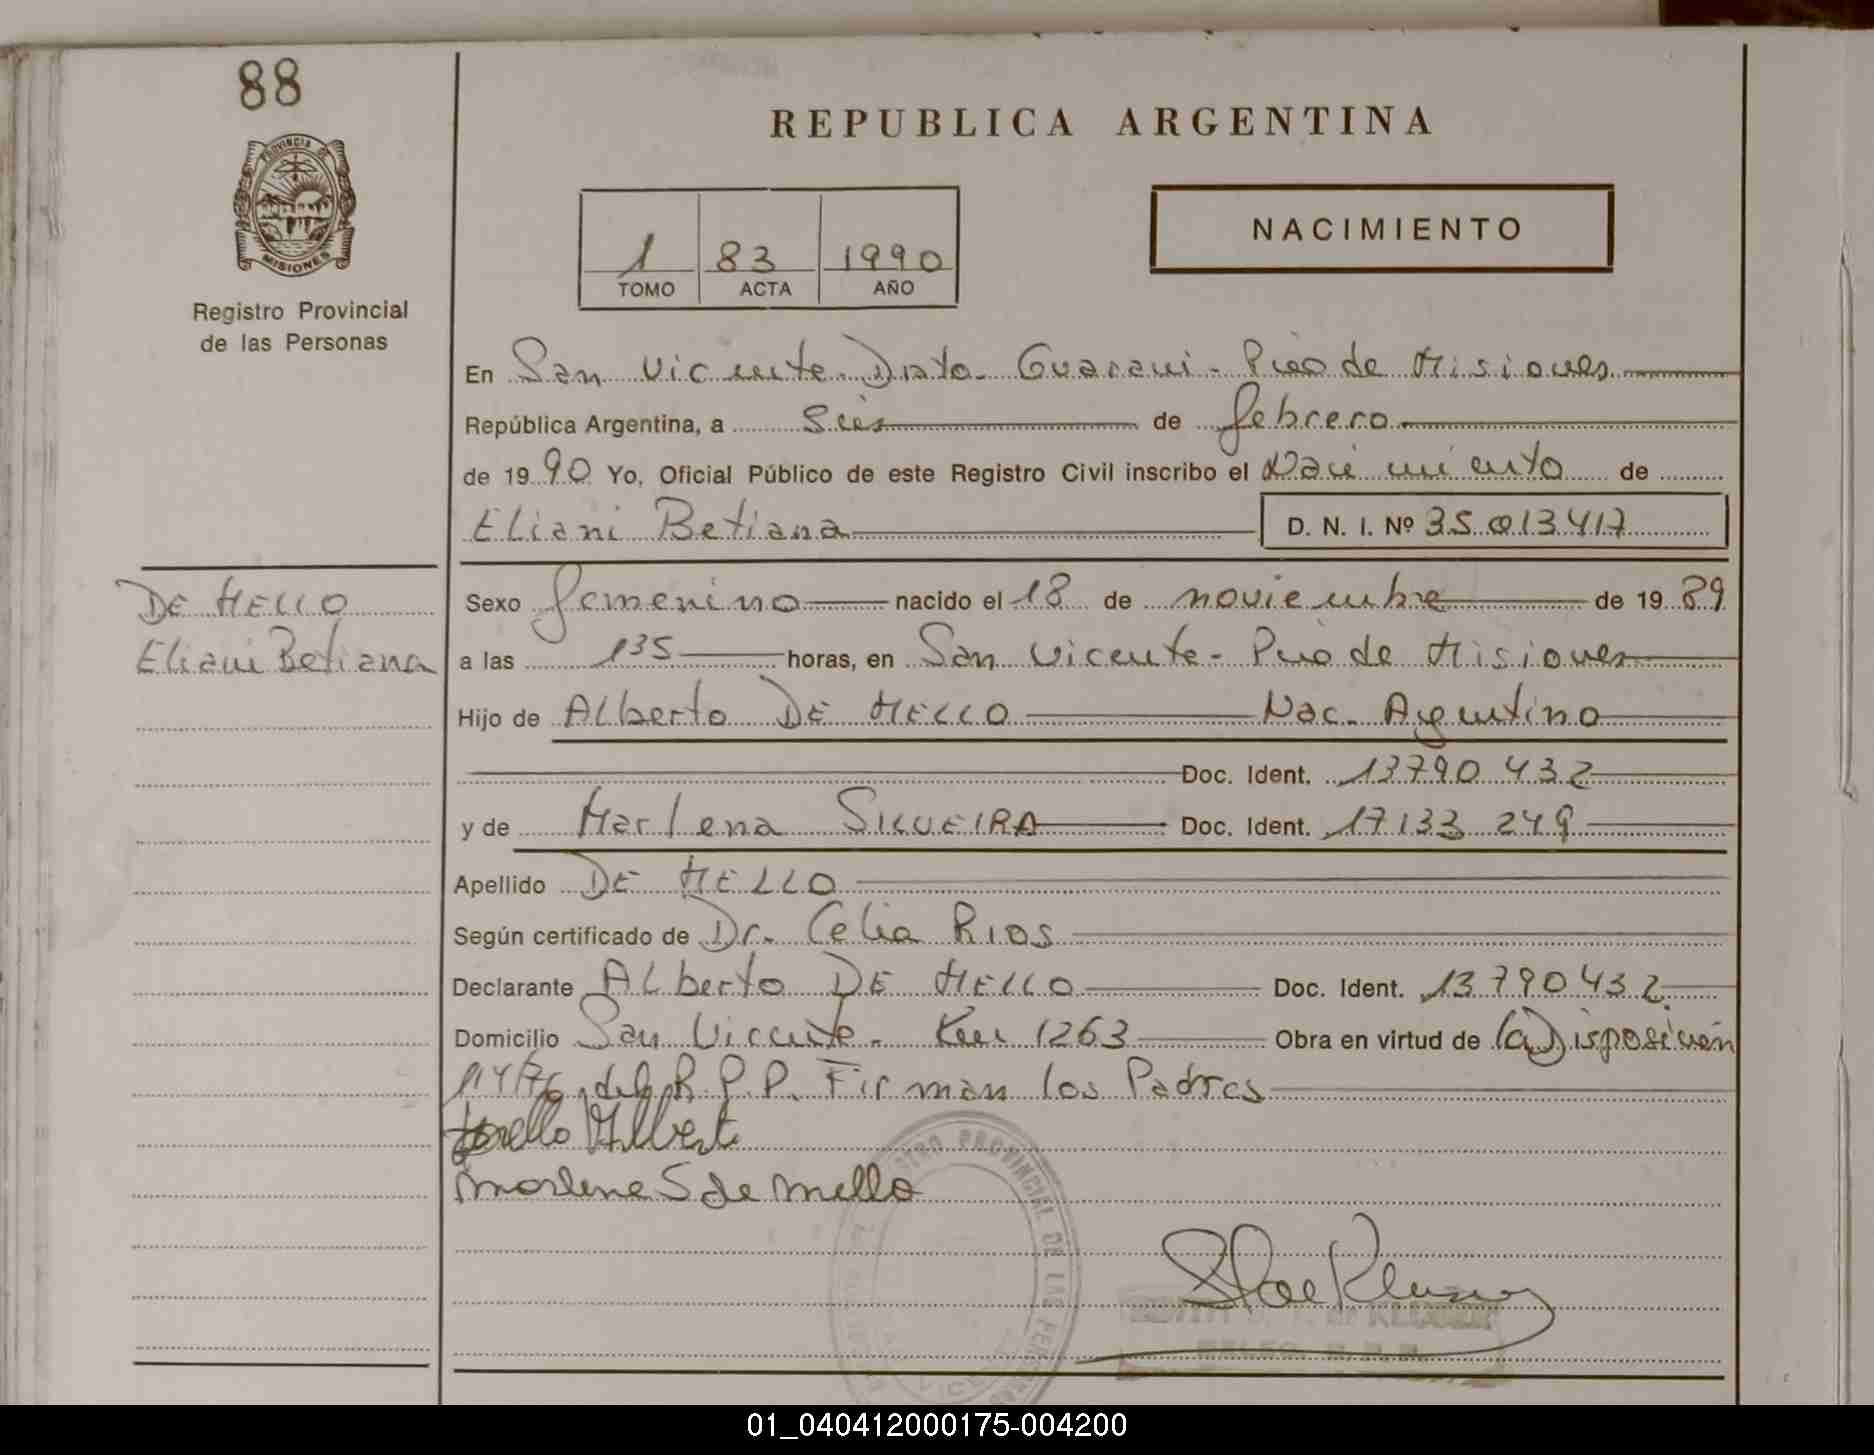 88
PROVINCIA DE
MISIONES
Registro Provincial
de las Personas
REPUBLICA ARGENTINA
1 83 1990
TOMO ACTA AÑO
NACIMIENTO
En San Vicente - Dpto. Guarani - Pcia de Misiones
República Argentina, a seis de febrero
de 1990 Yo, Oficial Público de este Registro Civil inscribo el Nacimiento de
Eliani Betiana D. N. I. Nº 35.013.417
DE MELLO
Eliani Betiana
Sexo femenino nacido el 18 de noviembre de 1989
a las 135 horas, en San Vicente - Pcia de Misiones
Hijo de Alberto DE MELLO Nac. Argentino
Doc. Ident. 13790 432
y de Marlena SILVEIRA Doc. Ident. 17133 249
Apellido DE MELLO
Según certificado de Dr. Celia Rios
Declarante Alberto DE MELLO Doc. Ident. 13790432
Domicilio San Vicente - Km 1263 Obra en virtud de (a) Disposición
114/76 del R.P.P. Firman los Padres
Alberto
Marlene S de Mello
REGISTRO PROVINCIAL DE LAS PERSONAS
01_040412000175-004200